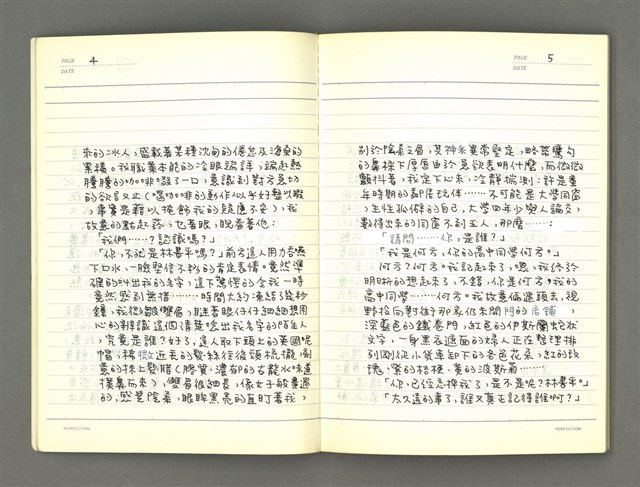 PAGE 4
DATE
來的冰人，盛載著某種沈甸的倦怠及海乘的
累積。我職業本能的冷眼端詳，端起熱
騰騰的咖啡啜了一口，意識到對方急切
的欲言又止（喝咖啡的動作似乎好整以暇
，事實是藉以掩飾我的疑慮不安），我
故意的點起菸，也看著眼，睨看著他：
「我們……？認識嗎？」
「你，不就是林書平嗎？」前方這人用力嚥
下口水，一臉堅信不移的肯定表情。竟然準
確的叫出我的名字，這下驚愕的令我一時
竟然感到無措……時間大約凍結了幾秒
鐘，我微皺雙眉，瞇著眼仔仔細細想用
心的辨識這個清楚唸出我名字的陌生人
，究竟是誰？好了，這人取下頭上的美國呢
帽，稀微近禿的髮絲往後頭梳攏，刻
意的抹上髮腊（膠質，濃郁的古龍水味道
撲鼻而來），雙眉很細長，像女子般畫過
的，感覺陰柔，眼眸黑亮的直盯著我，
PERFECTION
PAGE 5
DATE
別於陰柔之眉，其神采異常堅定，略帶鷹勾
的鼻樑下厚唇由於急欲表明什麼，而微微
顫抖著，我定下心來，冷靜揣測：許是童
年時期的鄰居玩伴……不可能是大學同窗
，生性孤僻的自己，大學四年少與人論交，
數得出來的同窗不到五人，那麼……；
「請問……你，是誰？」
「我是何方，你的高中同學何方。」
何方？何方。我記起來了，嗯，我終於
明晰的想起來了，不錯，你是何方？我的
高中同學……何方。我故意偏過頭去，視
野投向對街那家仍未開門的店鋪，
深藍色的鐵卷門，紅色的伊斯蘭蛇狀
文字，一身黑衣遮面的婦人正在整理排
列剛從小貨車卸下的各色花朵，紅的玫
瑰、紫的桔梗、黃的波斯菊……
「你，已經忘掉我了，是不是呢？林書平。」
「太久遠的事了，誰又真正記得誰啊？」
PERFECTION